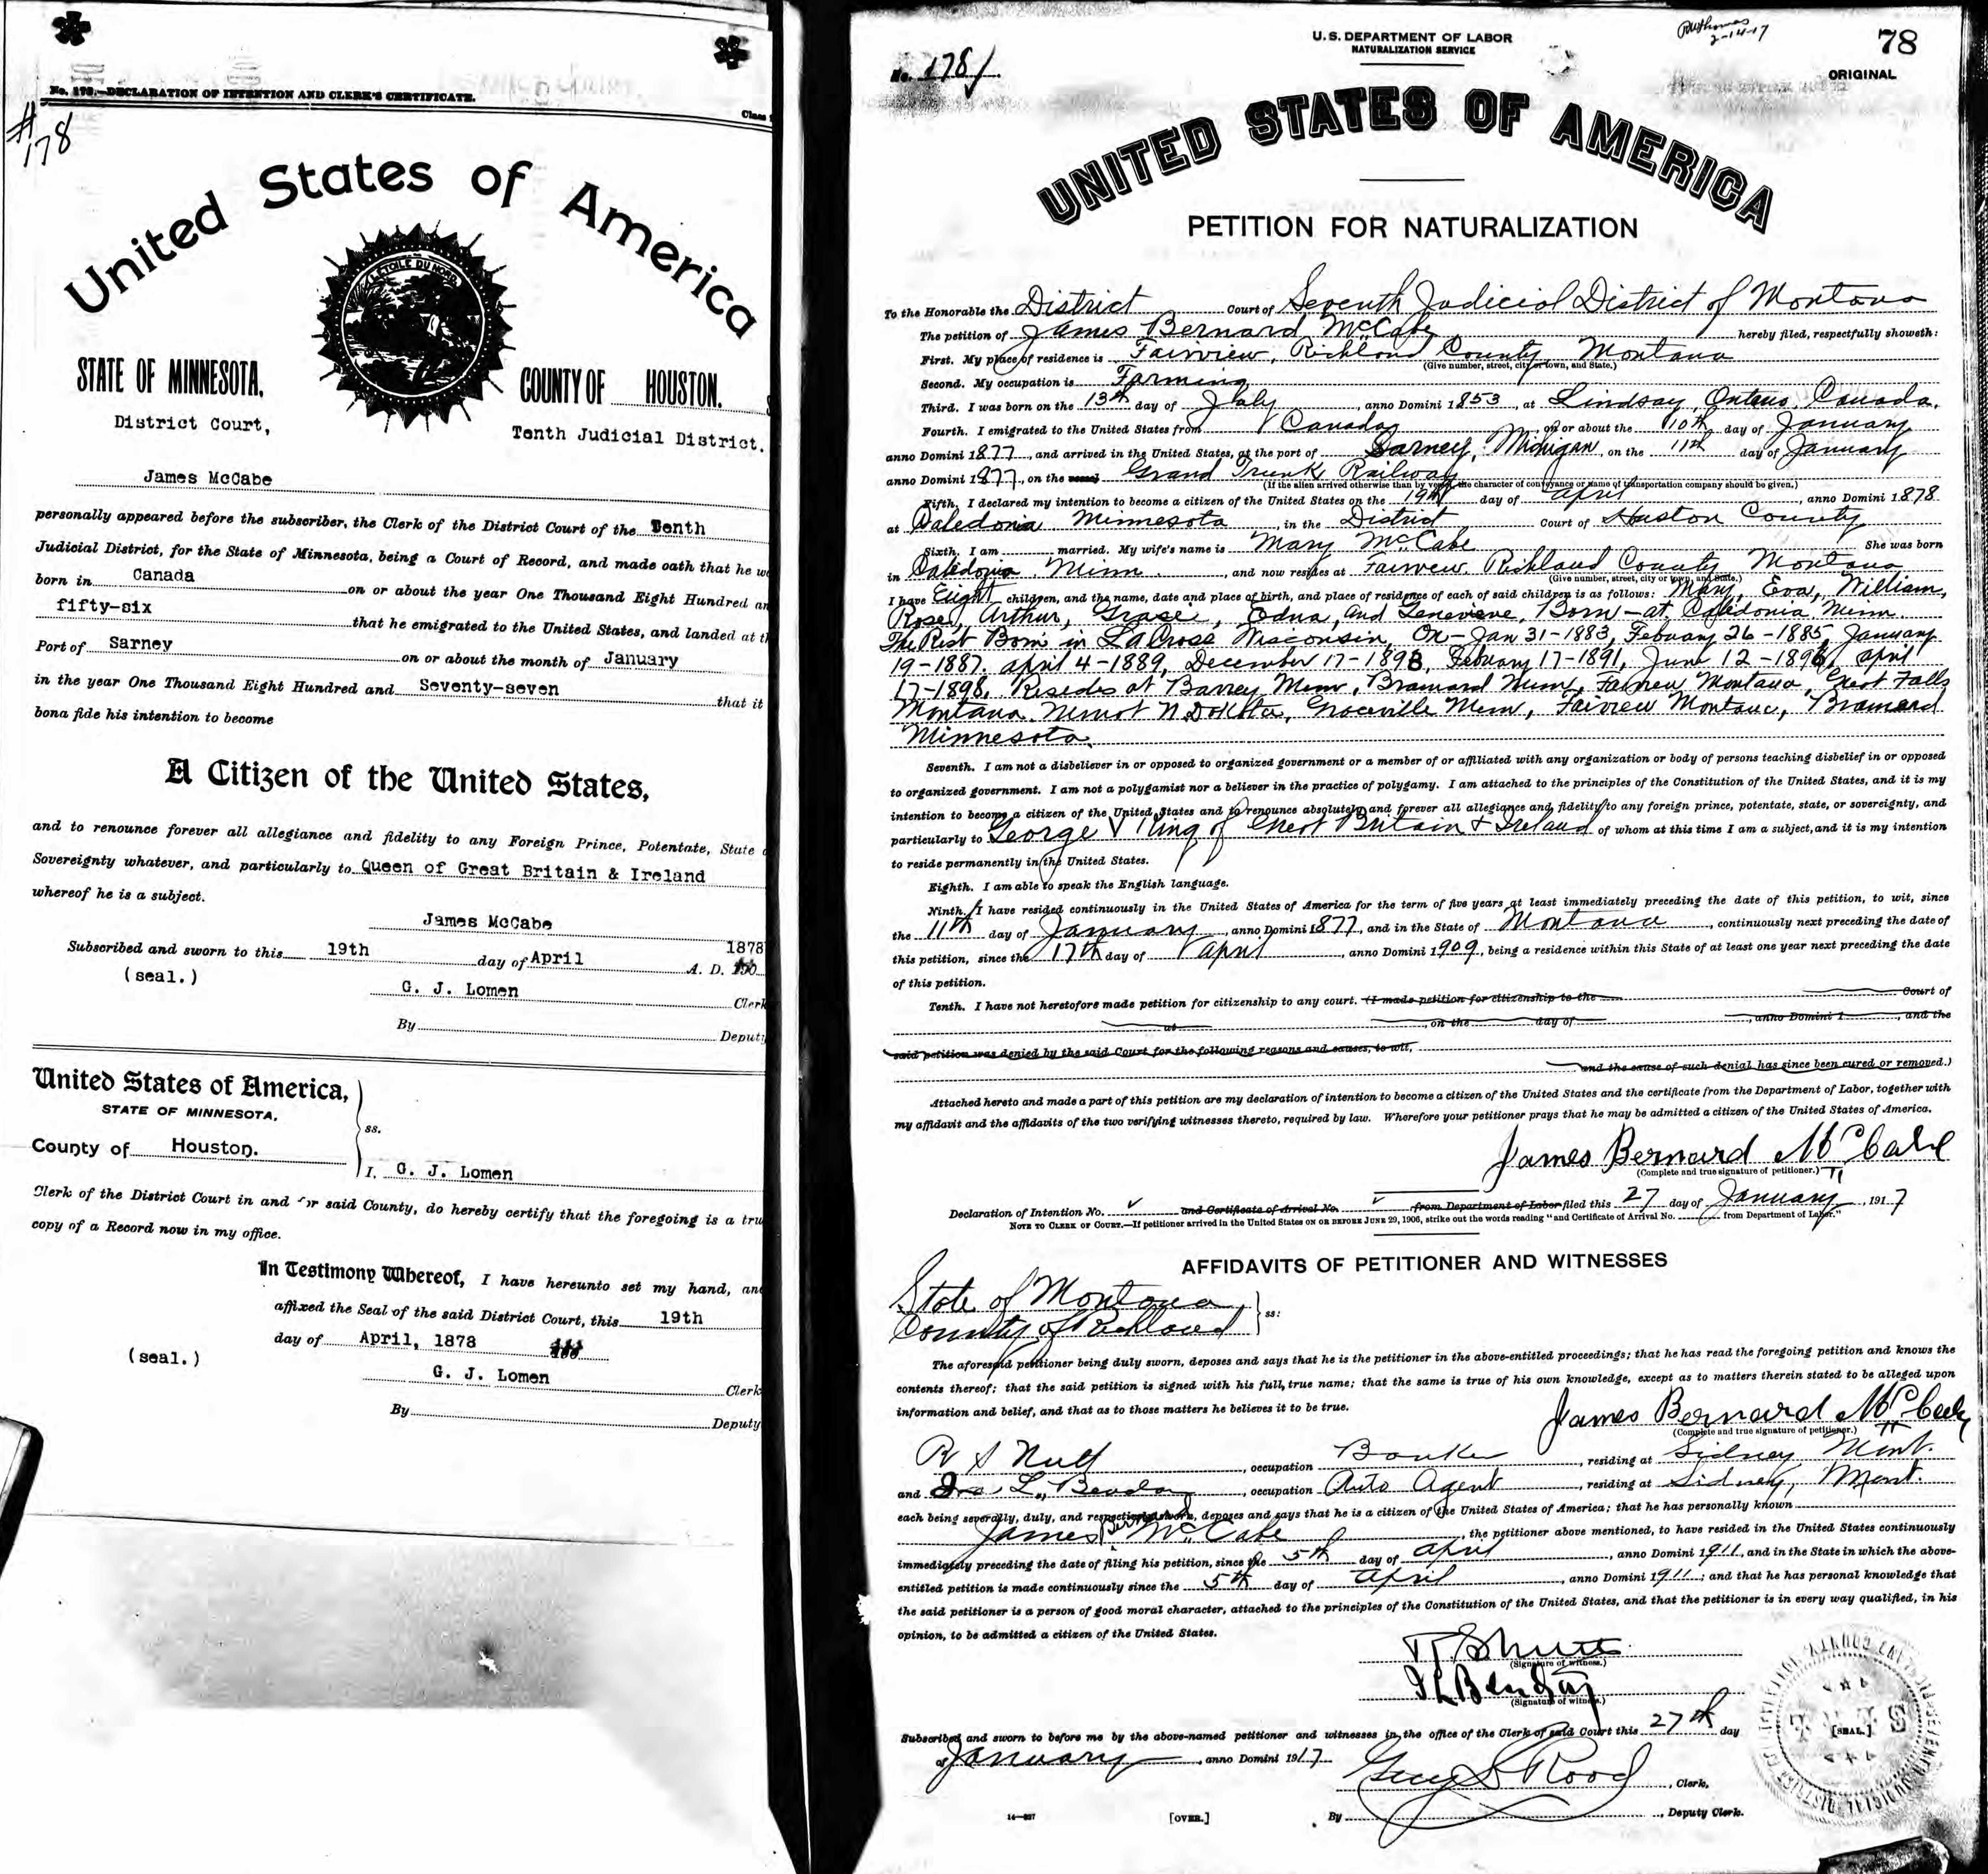 No. 178.—DECLARATION OF INTENTION AND CLERK'S CERTIFICATE.
Class
#178
United States of America
L'ETOILE DU NORD
STATE OF MINNESOTA,
COUNTY OF HOUSTON.
District Court,
Tenth Judicial District.
James McCabe
personally appeared before the subscriber, the Clerk of the District Court of the Tenth
Judicial District, for the State of Minnesota, being a Court of Record, and made oath that he w
born in Canada on or about the year One Thousand Eight Hundred an
fifty-six that he emigrated to the United States, and landed at th
Port of Sarney on or about the month of January
in the year One Thousand Eight Hundred and Seventy-seven that it
bona fide his intention to become
A Citizen of the United States,
and to renounce forever all allegiance and fidelity to any Foreign Prince, Potentate, State o
Sovereignty whatever, and particularly to Queen of Great Britain & Ireland
whereof he is a subject.
James McCabe
Subscribed and sworn to this 19th day of April A. D. 1878
(seal.)
G. J. Lomen Clerk
By Deputy
United States of America,
STATE OF MINNESOTA.
ss.
County of Houston.
I, G. J. Lomen
Clerk of the District Court in and for said County, do hereby certify that the foregoing is a tru
copy of a Record now in my office.
In Testimony Whereof, I have hereunto set my hand, and
affixed the Seal of the said District Court, this 19th
day of April, 1878
(seal.)
G. J. Lomen Clerk
By Deputy
U. S. DEPARTMENT OF LABOR
NATURALIZATION SERVICE
2-14-17
78
No. 178
ORIGINAL
UNITED STATES OF AMERICA
PETITION FOR NATURALIZATION
To the Honorable the District Court of Seventh Judicial District of Montana
The petition of James Bernard McCabe hereby filed, respectfully showeth:
First. My place of residence is Fairview, Richland County, Montana
(Give number, street, city or town, and State.)
Second. My occupation is Farming
Third. I was born on the 13th day of July, anno Domini 1853, at Lindsay, Ontario, Canada.
Fourth. I emigrated to the United States from Canada on or about the 10th day of January
anno Domini 1877, and arrived in the United States, at the port of Sarney, Michigan, on the 11th day of January
anno Domini 1877, on the vessel Grand Trunk Railway
(If the alien arrived otherwise than by vessel, the character of conveyance or name of transportation company should be given.)
Fifth. I declared my intention to become a citizen of the United States on the 19th day of April, anno Domini 1878
at Caledonia Minnesota in the District Court of Houston County
Sixth. I am married. My wife's name is Mary McCabe She was born
in Caledonia, Minn., and now resides at Fairview, Richland County Montana
(Give number, street, city or town, and State.)
I have Eight children, and the name, date and place of birth, and place of residence of each of said children is as follows: Mary, Eva, William,
Rose, Arthur, Grace, Edna, and Genevieve, Born-at Caledonia, Minn.
The Rest Born in LaCross Wisconsin, On-Jan 31-1883, Febuary 26-1885, January
19-1887, April 4-1889, December 17-1893, Febuary 17-1891, June 12-1896, April
17-1898. Resides at Minn, Brainard Minn, Fairview Montana, Great Falls
Montana, Minot N. Dakota, Graceville Minn, Fairview Montana, Brainard
Minnesota.
Seventh. I am not a disbeliever in or opposed to organized government or a member of or affiliated with any organization or body of persons teaching disbelief in or opposed
to organized government. I am not a polygamist nor a believer in the practice of polygamy. I am attached to the principles of the Constitution of the United States, and it is my
intention to become a citizen of the United States and to renounce absolutely and forever all allegiance and fidelity to any foreign prince, potentate, state, or sovereignty, and
particularly to George V King of Great Britain & Ireland of whom at this time I am a subject, and it is my intention
to reside permanently in the United States.
Eighth. I am able to speak the English language.
Ninth. I have resided continuously in the United States of America for the term of five years at least immediately preceding the date of this petition, to wit, since
the 11th day of January, anno Domini 1877, and in the State of Montana, continuously next preceding the date of
this petition, since the 17th day of April, anno Domini 1909, being a residence within this State of at least one year next preceding the date
of this petition.
Tenth. I have not heretofore made petition for citizenship to any court. (I made petition for citizenship to the Court of
at, on the day of, anno Domini 1, and the
said petition was denied by the said Court for the following reasons and causes, to wit,
and the cause of such denial has since been cured or removed.)
Attached hereto and made a part of this petition are my declaration of intention to become a citizen of the United States and the certificate from the Department of Labor, together with
my affidavit and the affidavits of the two verifying witnesses thereto, required by law. Wherefore your petitioner prays that he may be admitted a citizen of the United States of America.
James Bernard McCabe
(Complete and true signature of petitioner.)
Declaration of Intention No. and Certificate of Arrival No. from Department of Labor filed this 27 day of January, 1917
NOTE TO CLERK OF COURT.—If petitioner arrived in the United States ON OR BEFORE JUNE 29, 1906, strike out the words reading "and Certificate of Arrival No. from Department of Labor."
AFFIDAVITS OF PETITIONER AND WITNESSES
State of Montana
County of Richland
ss:
The aforesaid petitioner being duly sworn, deposes and says that he is the petitioner in the above-entitled proceedings; that he has read the foregoing petition and knows the
contents thereof; that the said petition is signed with his full, true name; that the same is true of his own knowledge, except as to matters therein stated to be alleged upon
information and belief, and that as to those matters he believes it to be true.
James Bernard McCabe
(Complete and true signature of petitioner.)
R S Nutt, occupation Banker, residing at Sidney Mont.
and Ira L. Bendon, occupation Auto Agent, residing at Sidney, Mont.
each being severally, duly, and respectively sworn, deposes and says that he is a citizen of the United States of America; that he has personally known
James Bernard McCabe, the petitioner above mentioned, to have resided in the United States continuously
immediately preceding the date of filing his petition, since the 5th day of April, anno Domini 1911, and in the State in which the above-
entitled petition is made continuously since the 5th day of April, anno Domini 1911; and that he has personal knowledge that
the said petitioner is a person of good moral character, attached to the principles of the Constitution of the United States, and that the petitioner is in every way qualified, in his
opinion, to be admitted a citizen of the United States.
(Signature of witness.)
(Signature of witness.)
Subscribed and sworn to before me by the above-named petitioner and witnesses in the office of the Clerk of said Court this 27th day
of January, anno Domini 1917
[SEAL.]
Guy S Rood, Clerk.
14—827
[OVER.]
By, Deputy Clerk.